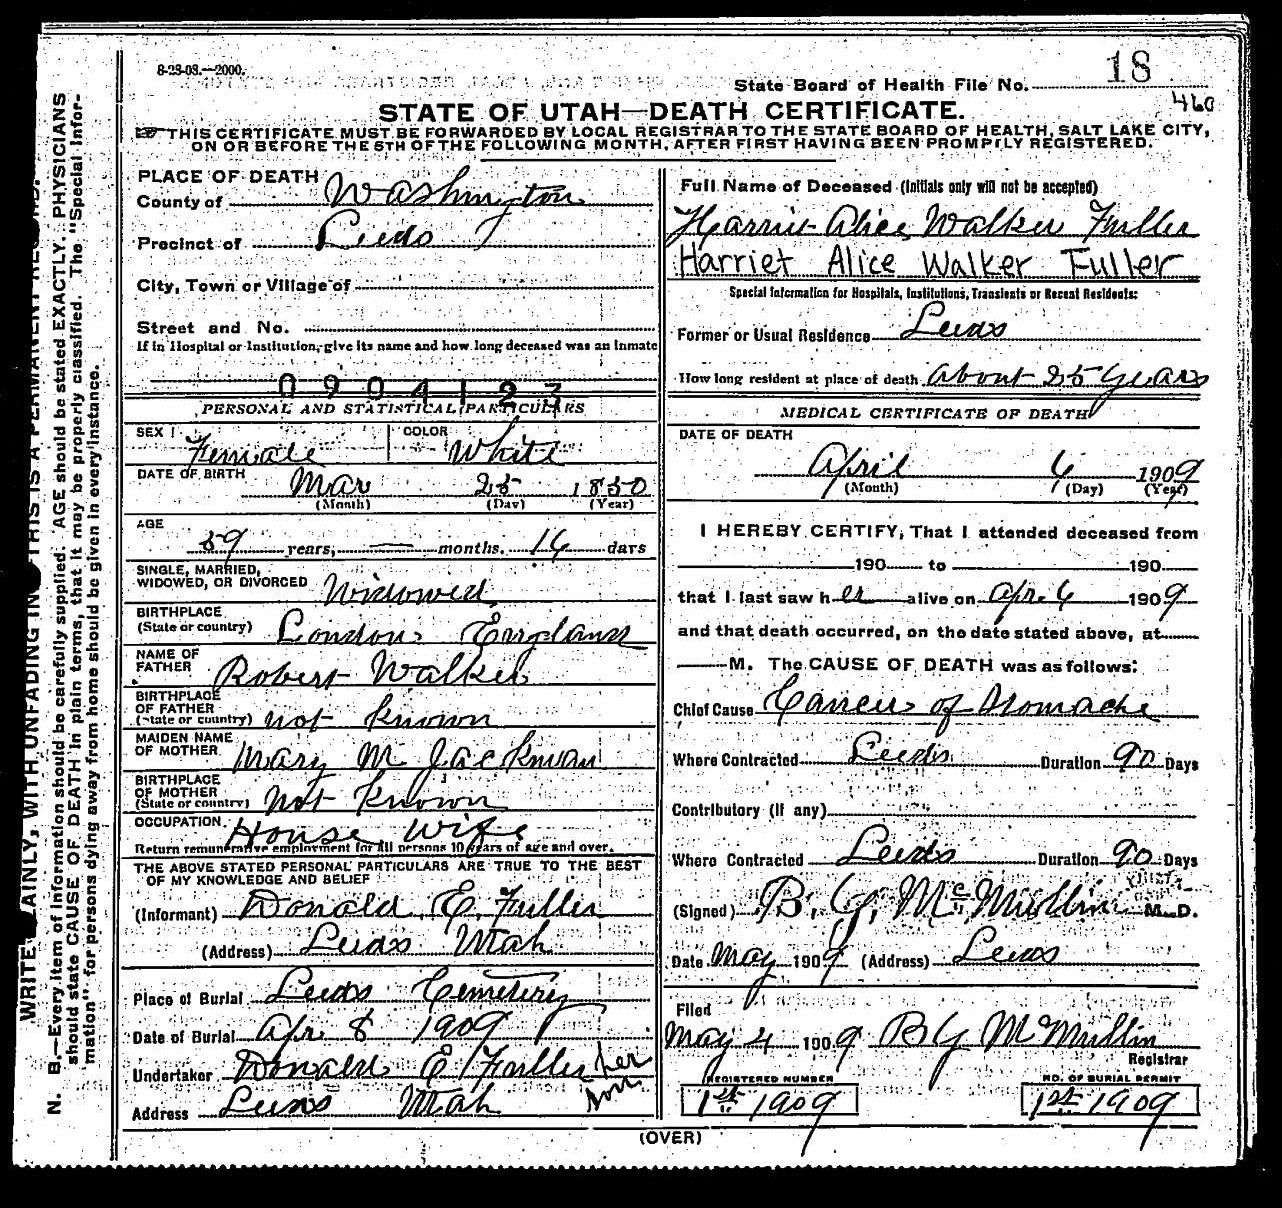 8-23-08.—2000.
State Board of Health File No. 18
460
STATE OF UTAH—DEATH CERTIFICATE.
THIS CERTIFICATE MUST BE FORWARDED BY LOCAL REGISTRAR TO THE STATE BOARD OF HEALTH, SALT LAKE CITY,
ON OR BEFORE THE 5TH OF THE FOLLOWING MONTH, AFTER FIRST HAVING BEEN PROMPTLY REGISTERED.
PLACE OF DEATH
County of Washington
Precinct of Leeds
City, Town or Village of
Street and No.
If in Hospital or Institution, give its name and how long deceased was an inmate
0904123
PERSONAL AND STATISTICAL PARTICULARS
SEX Female COLOR White
DATE OF BIRTH Mar 25 1850
(Month) (Day) (Year)
AGE 59 years, — months. 14 days
SINGLE, MARRIED,
WIDOWED, OR DIVORCED Widowed
BIRTHPLACE
(State or country) London England
NAME OF
FATHER Robert Walker
BIRTHPLACE
OF FATHER
(State or country) not known
MAIDEN NAME
OF MOTHER Mary M Jackman
BIRTHPLACE
OF MOTHER
(State or country) Not Known
OCCUPATION House Wife
Return remunerative employment for all persons 10 years of age and over.
THE ABOVE STATED PERSONAL PARTICULARS ARE TRUE TO THE BEST
OF MY KNOWLEDGE AND BELIEF
(Informant) Donald E. Fuller
(Address) Leeds Utah
Place of Burial Leeds Cemetery
Date of Burial Apr 8 1909
Undertaker Donald E Fuller her son
Address Leeds Utah
Full Name of Deceased (Initials only will not be accepted)
Harriet Alice Walker Fuller
Harriet Alice Walker Fuller
Special Information for Hospitals, Institutions, Transients or Recent Residents:
Former or Usual Residence Leeds
How long resident at place of death About 25 Years
MEDICAL CERTIFICATE OF DEATH
DATE OF DEATH
April 6 1909
(Month) (Day) (Year)
I HEREBY CERTIFY, That I attended deceased from
190 to 190
that I last saw her alive on Apr. 6 1909
and that death occurred, on the date stated above, at
M. The CAUSE OF DEATH was as follows:
Chief Cause Cancer of Stomache
Where Contracted Leeds Duration 90 Days
Contributory (if any)
Where Contracted Leeds Duration 90 Days
(Signed) B. Y. McMullin M. D.
Date May 1909 (Address) Leeds
Filed
May 4 1909 B Y McMullin
Registrar
REGISTERED NUMBER
1st 1909
NO. OF BURIAL PERMIT
1st 1909
(OVER)
N. B.—Every item of information should be carefully supplied. AGE should be stated EXACTLY. PHYSICIANS
should state CAUSE OF DEATH in plain terms, that it may be properly classified. The "Special Infor-
mation" for persons dying away from home should be given in every instance.
WRITE PLAINLY, WITH UNFADING INK THIS IS A PERMANENT RECORD.